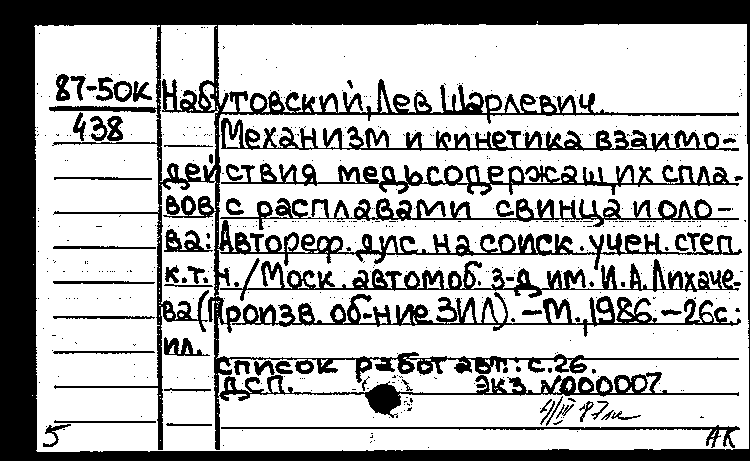 87-50К Набутовский, Лев Шарлевич.
438 Механизм и кинетика взаимо-
действия медьсодержащих спла-
вов с расплавами свинца и оло-
ва: Автореф. дис. на соиск. учен. степ.
к.т.н. / Моск. автомоб. з-д им. И.А. Лихаче-
ва (Произв. об-ние ЗИЛ). — М., 1986. — 26с.:
ил.
Список работ авт.: с.26.
ДСП. Экз. №000007.
5 АК